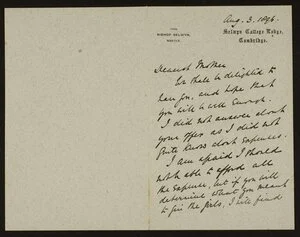 Aug. 3. 1896.
Selwyn College Lodge,
Cambridge.
BISHOP SELWYN,
Dearest Mother
We shall be delighted to
have you, and hope that
you will be well enough.
I did not answer about
your offer as I did not
quite know about expenses.
I am afraid I should
not be able to afford all
the expense, but if you will
determine what you meant
to give the girls, I will find